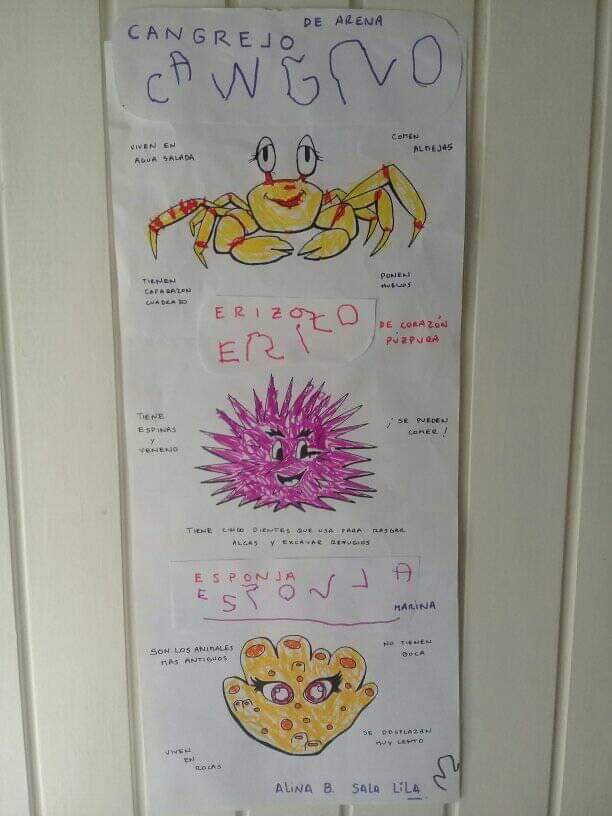 CANGREJO
DE ARENA
CANGNO
VIVEN EN
AGUA SALADA
COMEN
ALMEJAS
TIENEN
CAPARAZON
CUADRADO
PONEN
HUEVOS
ERIZO
ERIZO
DE CORAZÓN
PÚRPURA
TIENE
ESPINAS
Y
VENENO
¡SE PUEDEN
COMER!
TIENE CINCO DIENTES QUE USA PARA RASGAR
ALGAS Y EXCAVAR REFUGIOS
ESPONJA
ESPONJA
MARINA
SON LOS ANIMALES
MAS ANTIGUOS
NO TIENEN
BOCA
VIVEN
EN
ROCAS
SE DESPLAZAN
MUY LENTO
ALINA B. SALA LILA